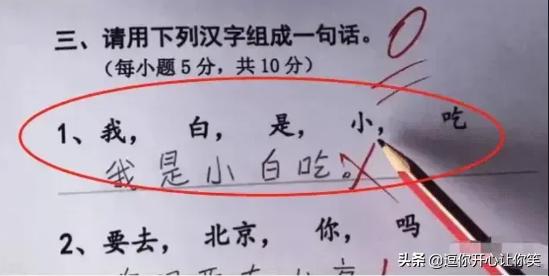 三、请用下列汉字组成一句话。
（每小题5分，共10分）
1、我， 白， 是， 小， 吃
我是小白吃。
2、要去， 北京， 你， 吗
头条 @逗你开心让你笑